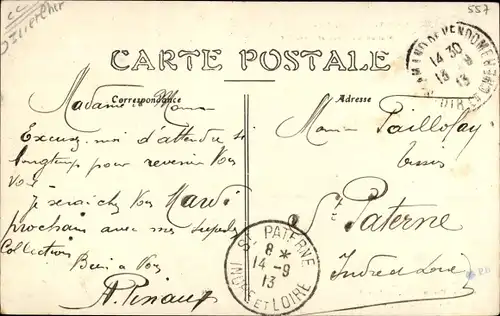 557
CARTE POSTALE
Correspondance
Adresse
Madame, Monsieur
Excusez-moi d'attendre si
longtemps pour revenir vous
voir
Je serai chez vous Mardi
prochain avec mes superbes
Collections
Bien à vous
A. Pinault
Monsieur Taillofay
St Paterne
Indre et Loire
VENDOME
14 30
13 - 9
13
ST PATERNE
8 *
14 - 9
13
INDRE ET LOIRE